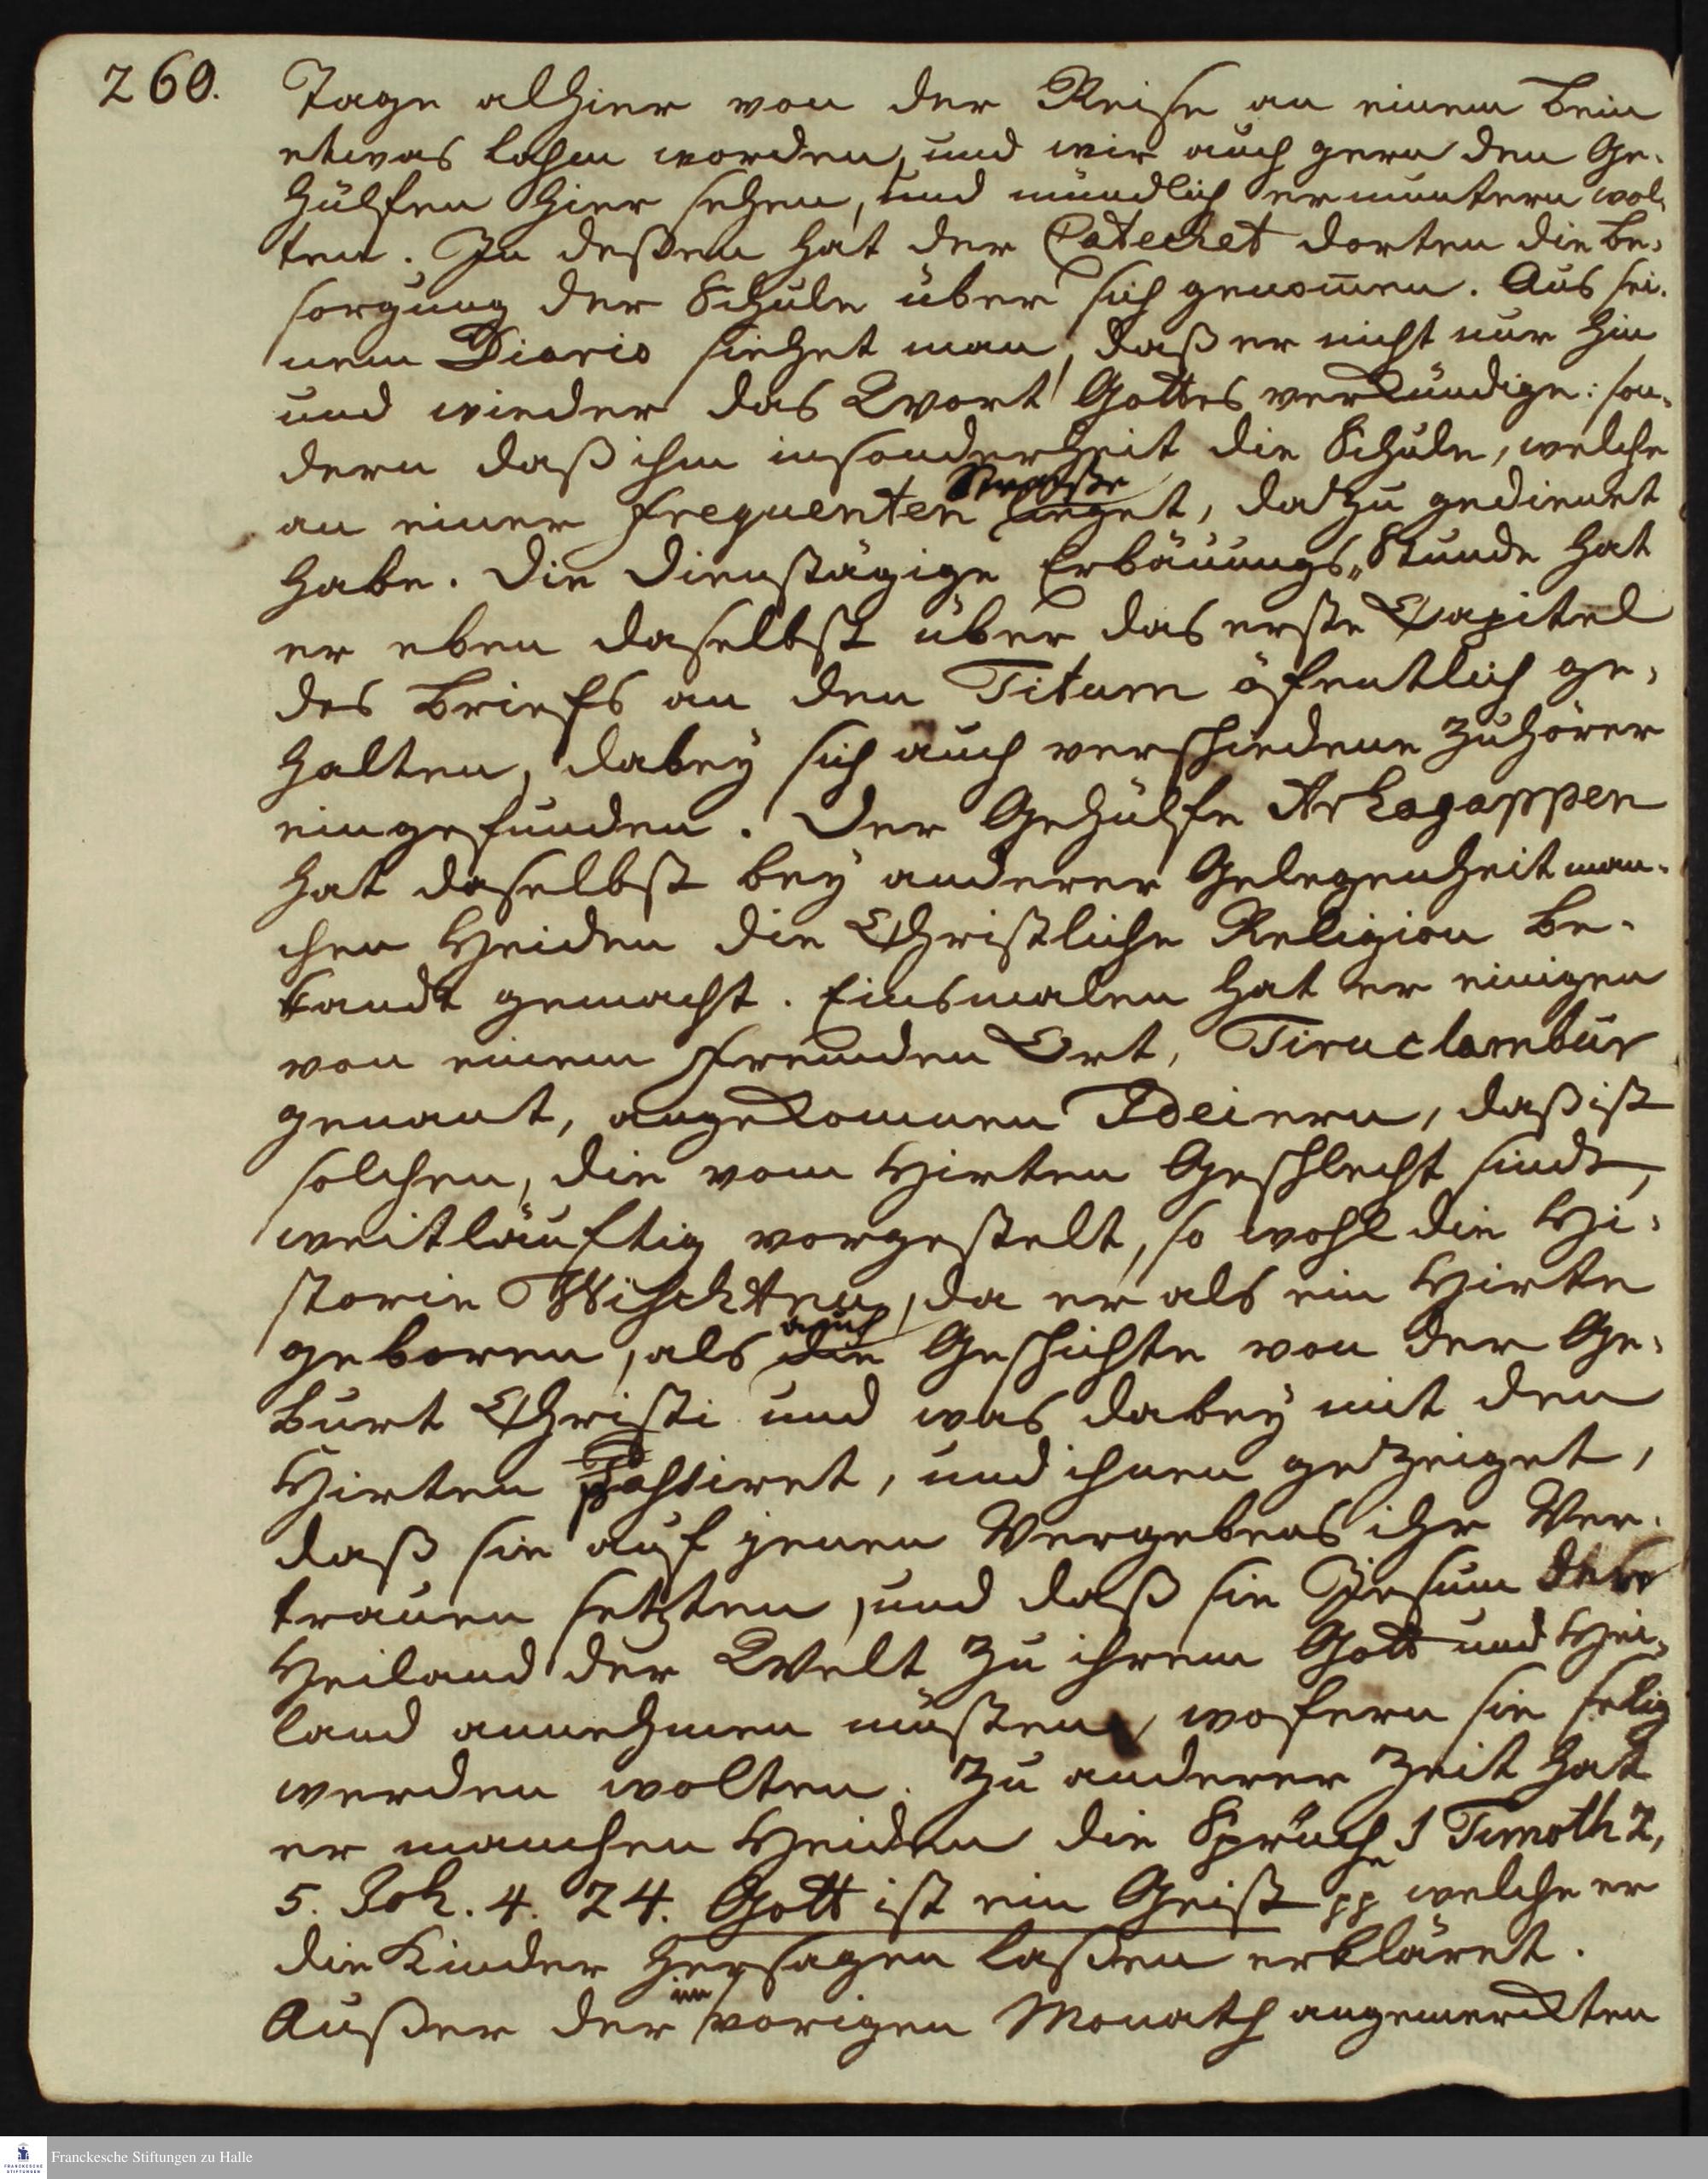 260.
Tage alhier von der Reise an einem Bein
etwas lahm worden, und wir auch gern den Ge-
hülfen hier sehen, und mündlich ermuntern wol-
ten. In deßen hat der Catechet dorten die Be-
sorgung der Schule über sich genom̅en. Aus sei-
nem Diario siehet man, daß er nicht nur hin
und wieder das Wort Gottes verkündige: son-
dern daß ihm insonderheit die Schule, welche
Straße
an einer frequenten lieget, dazu gedienet
habe. Die dienstägige Erbauungs-Stunde hat
er eben daselbst über das erste Capitel
des Briefs an den Titum öfentlich ge-
halten, dabey sich auch verschiedene Zuhörer
eingefunden. Der Gehülfe Arhagappen
hat daselbst bey anderer Gelegenheit man-
chen Heiden die Christliche Religion be-
kandt gemacht. Einsmalen hat er einigen
von einem fremden Ort, Tiruclambur
genant, angekommen Ideiern, daß ist
solchen, die vom Hirten Geschlecht sind,
weitläuftig vorgestelt, so wohl die Hi-
storie Wischtnu, da er als ein Hirte
auch
geboren, als die Geschichte von der Ge-
burt Christi und was dabey mit den
Hirten passiret, und ihnen gezeiget,
daß sie auf jenen Vergebens ihr Ver-
trauen setzten, und daß sie Jesum den
Heiland der Welt zu ihrem Gott und Hei-
land annehmen müsten, wofern sie selig
werden wolten. Zu anderer Zeit hat
er manchen Heiden die Sprüche 1 Timoth 2,
5. Joh. 4. 24. Gott ist ein Geist pp welche er
die Kinder hersagen laßen erkläret.
im
Außer der vorigen Monath angemerckten
Franckesche Stiftungen zu Halle
FRANCKESCHE
STIFTUNGEN